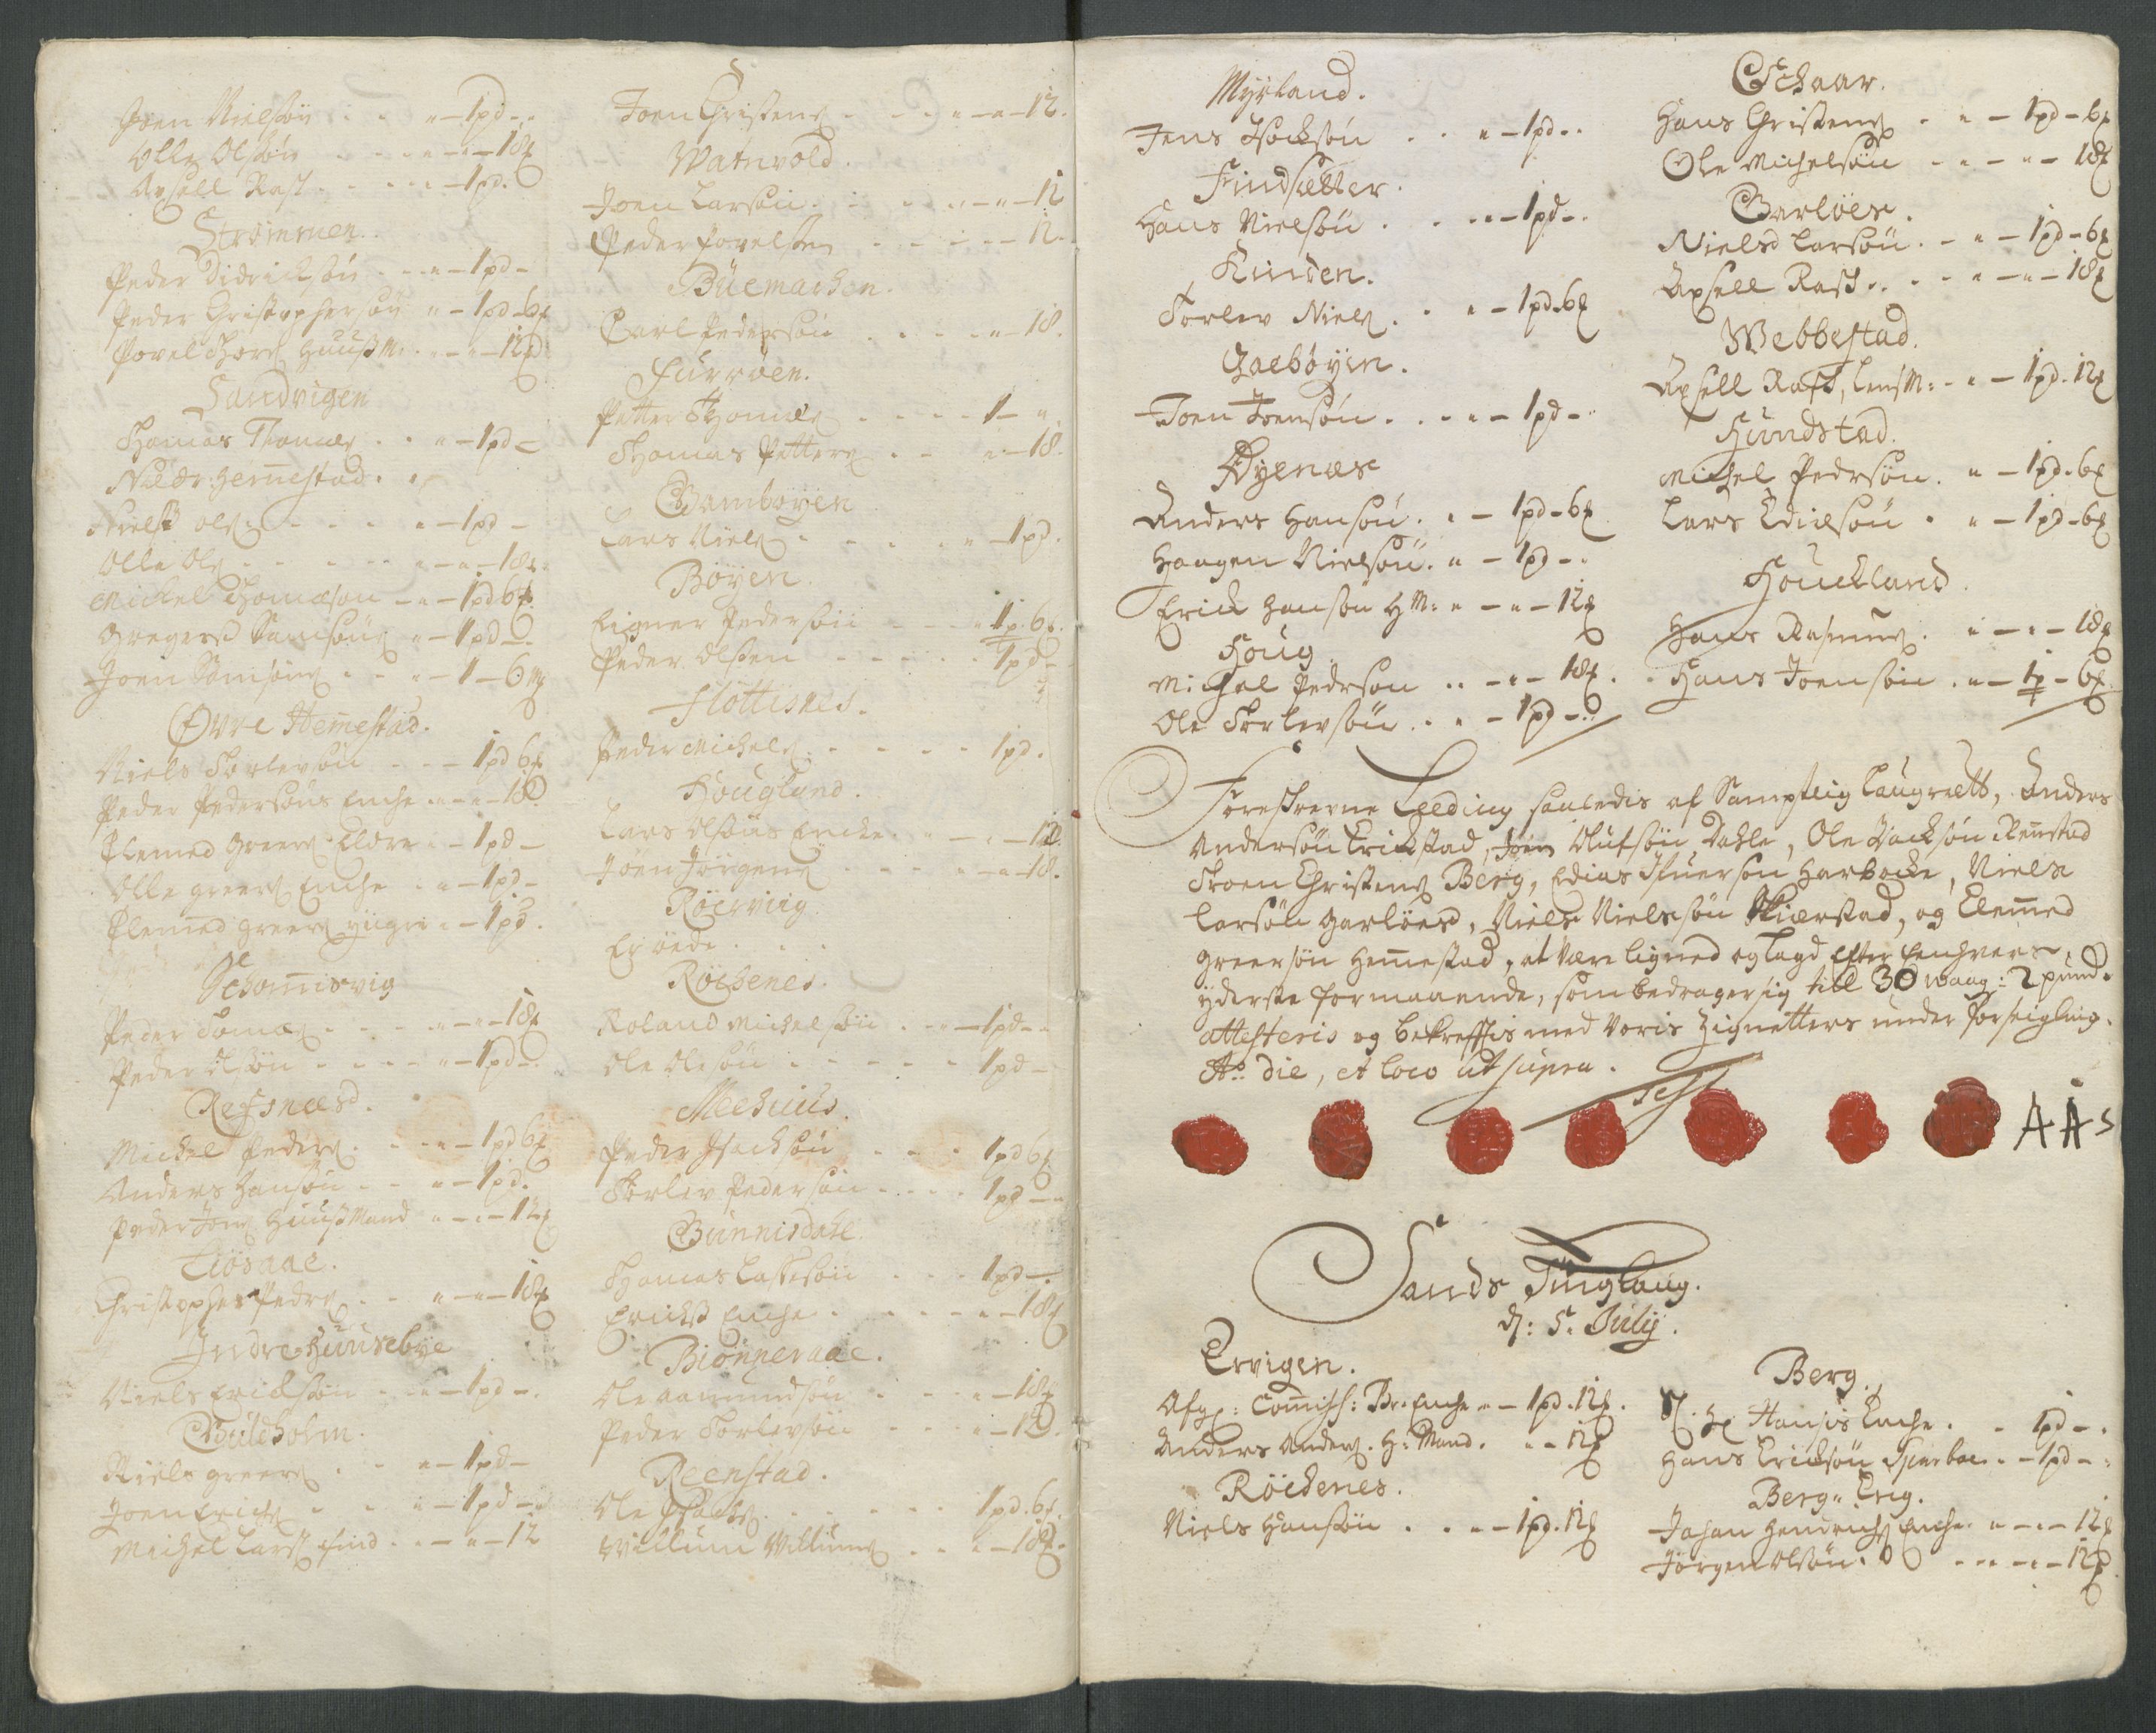 Joen Nielsøn - - " - 1pd - "
Olle Olsøn - - - " - " - 18
Axsell Rast - - - " - 1pd.
Strømmen.
Peder Didricksøn - - " - 1pd -
Peder Christophersøn " - 1pd - 6
Povel Thors Huuss M: - " - " - 12
Sandvigen
Thomas Thomæs - - " - 1pd -
Neder Hemestad.
Niels Ols - - - " - 1pd -
Olle Ols - - - " - " - 18
Michel Thomæson - " - 1pd 6
Gregers Samsøns " - 1pd -
Joen Samsøns - - " - 1 - 6
Øvre Hemestad.
Niels Torlevsøn - - - 1pd 6
Peder Pedersøns Enche - " - " - 18
Clemed Greers Eldre - - 1pd -
Olle Greers Enche - " - 1pd -
Clemed Greers yngri - - 1pd.
Schomisvig
Peder Tomæs - - - " - " - 18
Peder Olsøn - - - " - 1pd -
Refsnæs.
Michel Peders - - " - 1pd 6
Anders Hansøn - - " - 1pd.
Peder Joens Huuss Mand " - " - 12
Tiøsaae.
Christopher Peders - - " - " - 18
Indre Huusebye
Niels Ericksøn - - " - 1pd -
Guldholm.
Niels Greers - - " - 1pd -
Joen Erichs - - " - 1pd -
Michel Lars find - - " - 12
Joen Christens - - - " - " - 12.
Watnvold.
Joen Larsøn - - - " - " - 12
Peder Povelsen - - - - 12
Buemarchen.
Carl Pedersøn - - - " - 18.
Furrøen.
Petter Thomæs - - - - 1 - "
Thomas Petters - - " - 18.
Gambøyen
Lars Niels - - - - " - 1pd.
Bøyen.
Eigner Pedersøn - - - " 1p. 6
Peder Olssen - - - - 1pd -
Slottisnes.
Peder Michels - - - - 1pd.
Hougland.
Lars Olsøns Encke - " - " - 12
Joen Jørgens - - - - " - 18.
Røervig
Er øede - - -
Røchenes.
Roland Michelsøn - - " - 1pd -
Ole Olesøn - - - - - 1pd -
Mechuus.
Peder Isacksøn - - - 1pd 6
Torlev Pedersøn - - - 1pd -
Gunnisdale
Thomas Lassesøn - - - 1pd -
Ericks Enche - - - - " - 18
Biønneraae.
Ole Aamundsøn - - - " - 18
Peder Torlevsøn - - - " - 12.
Reenstad.
Ole Isacks - - - - 1pd. 6
Willum Willums - - " - 18
Myrland.
Jens Isacksøn - - " - 1pd - -
Findsætter.
Hans Nielsøn - - - " - 1pd - -
Kinden.
Torlev Niels - - " - 1pd. 6
Gaebøyen.
Joen Joensøn - - - " - 1pd -
Øyenæs
Anders Hansøn. - " - 1pd - 6
Haagen Nielsøn. " - 1pd - -
Erick Hansøn H M: " - " - 12
Houg.
Michel Pedrsøn - - " - 18
Ole Torlevsøn - - " - 1pd -
Schaar.
Hans Christens - - " - 1pd - 6
Ole Michelsøn - - " - 18
Garløes.
Niels Larsøn - - " - 1pd - 6
Axsell Rast - - - " - " - 18
Webbestad.
Axsell Rast, LensM: - " - 1pd. 12
Hundstad.
Michel Pedrsøn. " - 1pd. 6
Lars Ediesøn - " - 1pd - 6
Houckland.
Hans Rasmus - " - " - 18
Hans Joensøn - " - 1p - 6
Foreskrevne Leeding saaledis af Samptlig Laugrett, Anders
Andersøn Erickstad, Joen Olufsøn Dahle, Ole Isacksøn Renstad
Troen Christens Berg, Edias Ifuersøn Harbocke, Niels
Larsøn Garløes, Niels Nielsøn Skierstad, og Clemed
Greersøn Hemestad, at være ligned og lagd efter Eenhvers
yderste formaaende, som bedrager sig till 30 waag: 2 pund.
attesteris og bekrefftis med Voris Zignetters under forseigling.
Ao: die, et loco ut supra.
A A S
Sands Tinglaug.
d: 5. July.
Ervigen.
Afg: Commiss: Br. Enche " - 1pd. 12
Anders Anders. H: Mand. - " - 12
Røchenes.
Niels Hansøn - - " - 1pd. 12
Berg.
Hansis Enche. - 1pd - -
Hans Ericksøn - - 1pd - -
Berg: Eng.
Johan Hendrichs Enche. " - " - 12
Jørgen Olsøn. - - " - " - 12